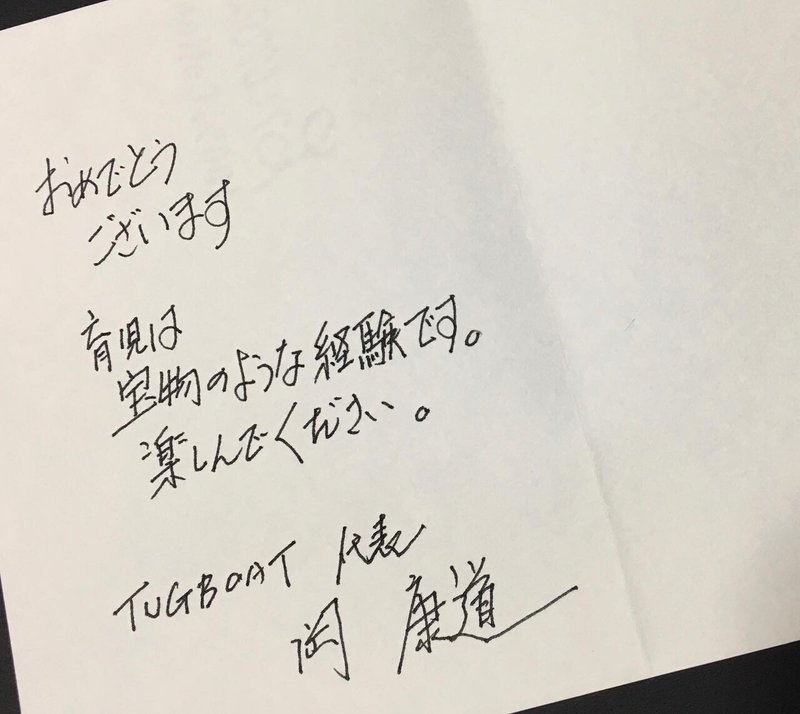 おめでとう
ございます
育児は
宝物のような経験です。
楽しんでください。
TUGBOAT 代表
岡 康道